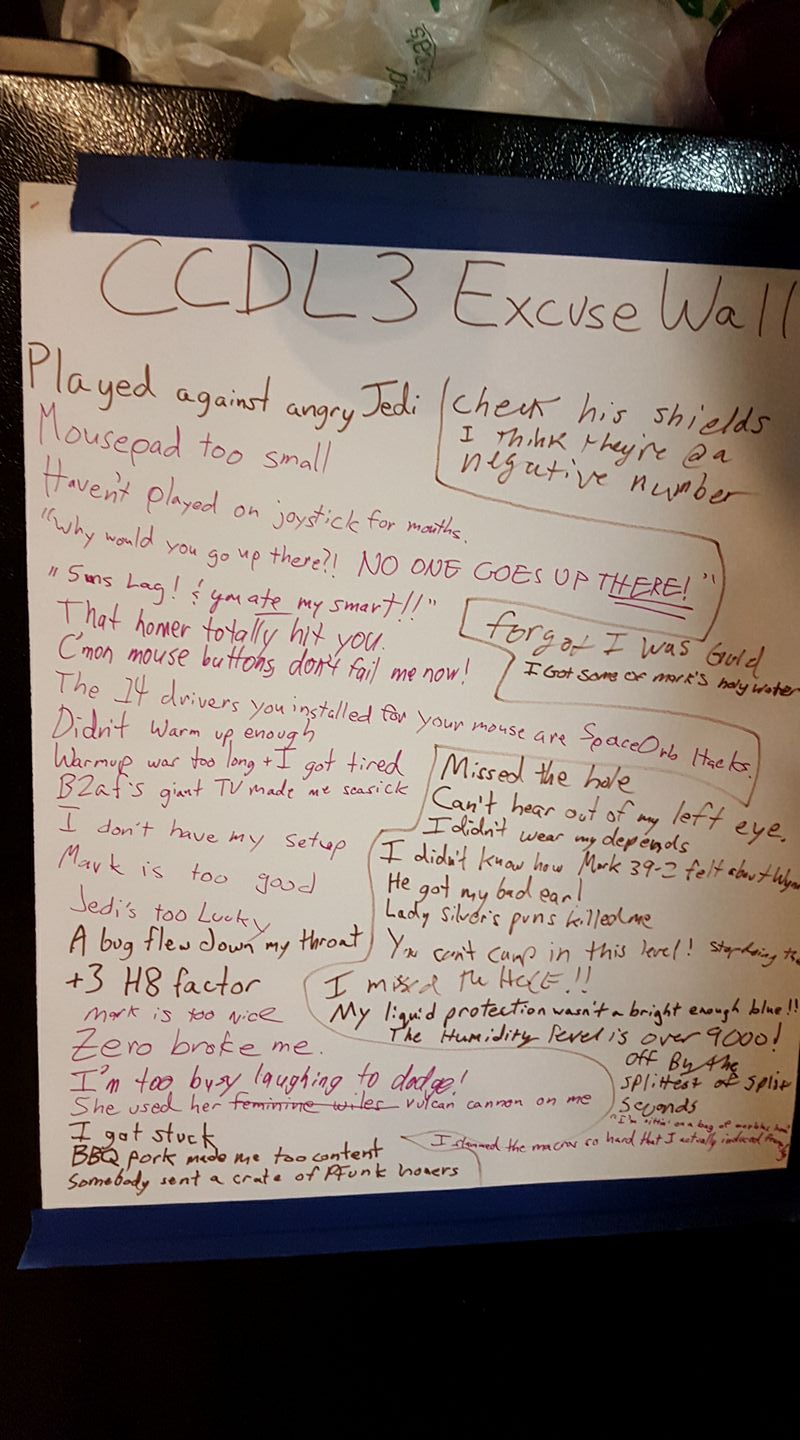 CCDL3 Excuse Wall
Played against angry Jedi
Mousepad too small
Haven't played on joystick for months.
"Why would you go up there?! NO ONE GOES UP THERE!"
"5ms Lag! & you ate my smart!!"
That homer totally hit you.
C'mon mouse buttons, don't fail me now!
The 14 drivers you installed for your mouse are SpaceOrb Hacks.
Didn't warm up enough
Warmup was too long + I got tired
B2af's giant TV made me seasick
I don't have my setup
Mark is too good
Jedi's too Lucky
A bug flew down my throat
+3 H8 factor
Mark is too nice
Zero broke me.
I'm too busy laughing to dodge!
She used her feminine wiles vulcan cannon on me
I got stuck
BBQ pork made me too content
Somebody sent a crate of PFunk homers
Check his shields
I think they're @ a
negative number
forgot I was Guld
I Got some of mark's holy water
Missed the hole
Can't hear out of my left eye.
I didn't wear my depends
I didn't know how Mark 39-2 felt about
He got my bad ear!
Lady Silver's puns killed me
You can't camp in this level! Stop doing
I missed the HOLE!!
My liquid protection wasn't a bright enough blue!!
The Humidity level is over 9000!
off By the
splittest of split
seconds
"I'm sittin' on a bag of marbles
I slammed the macros so hard that I actually induced